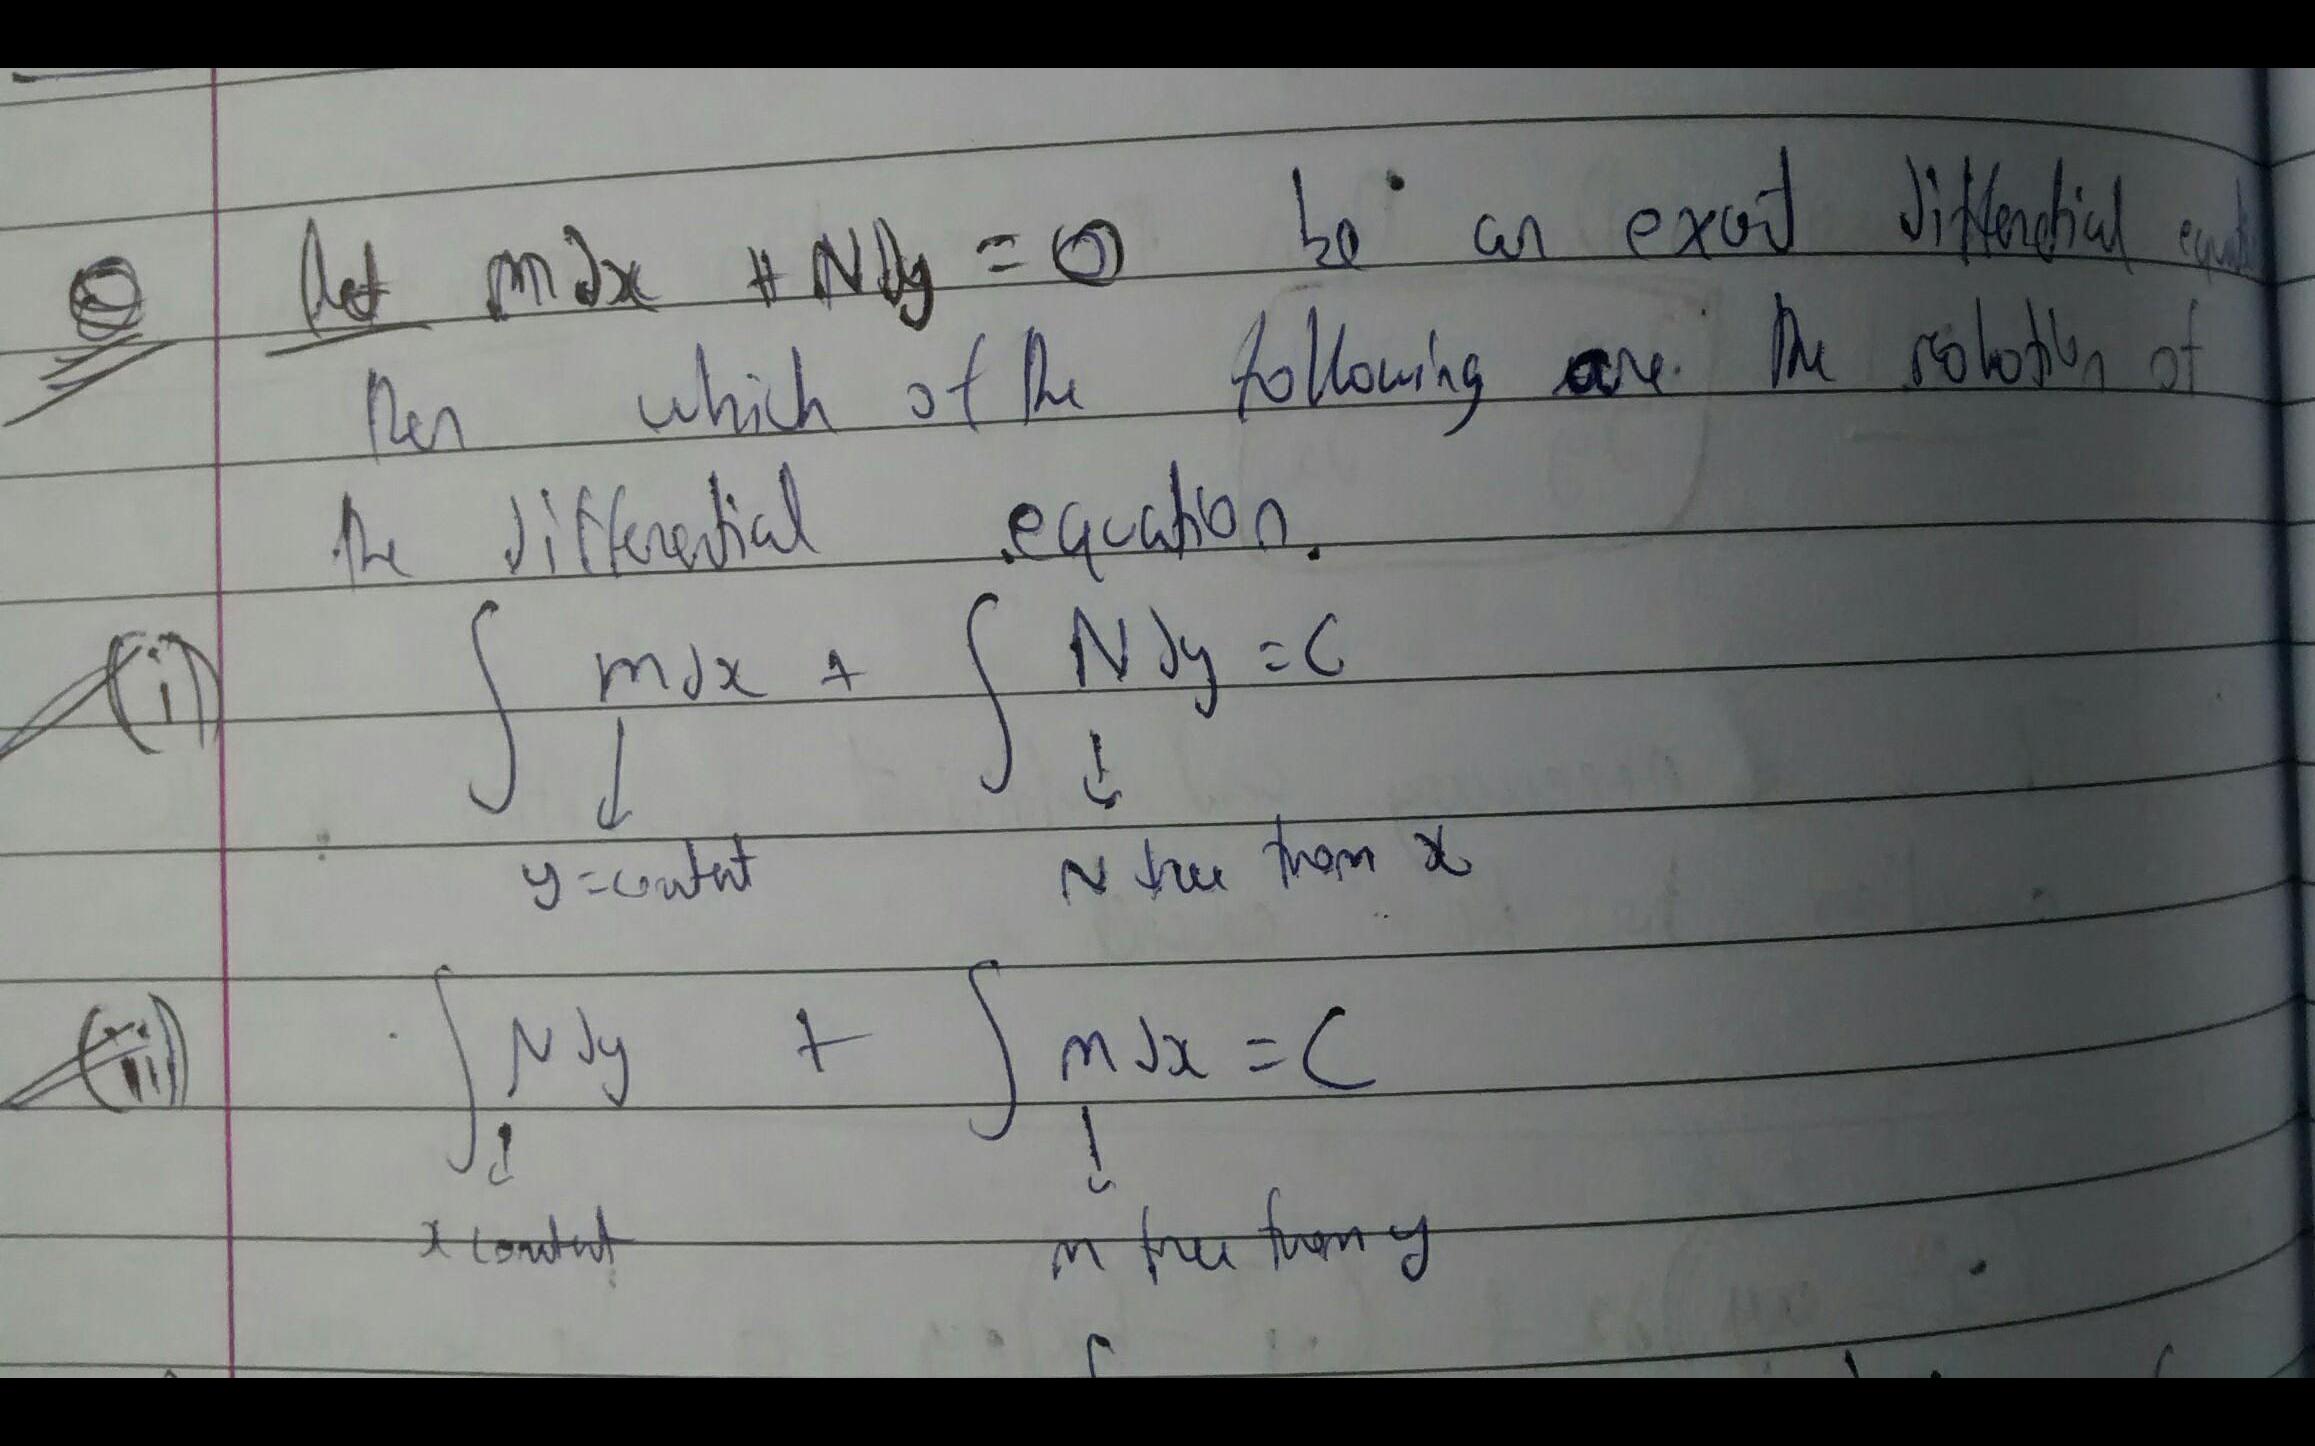 Let mdx + Ndy = 0 be an exact differential
then which of the following are the solution of
the differential equation.
(i) ∫ mdx + ∫ N dy = C
↓ ↓
y = constant N free from x
(ii) ∫ N dy + ∫ m dx = C
↓ ↓
x constant m free from y